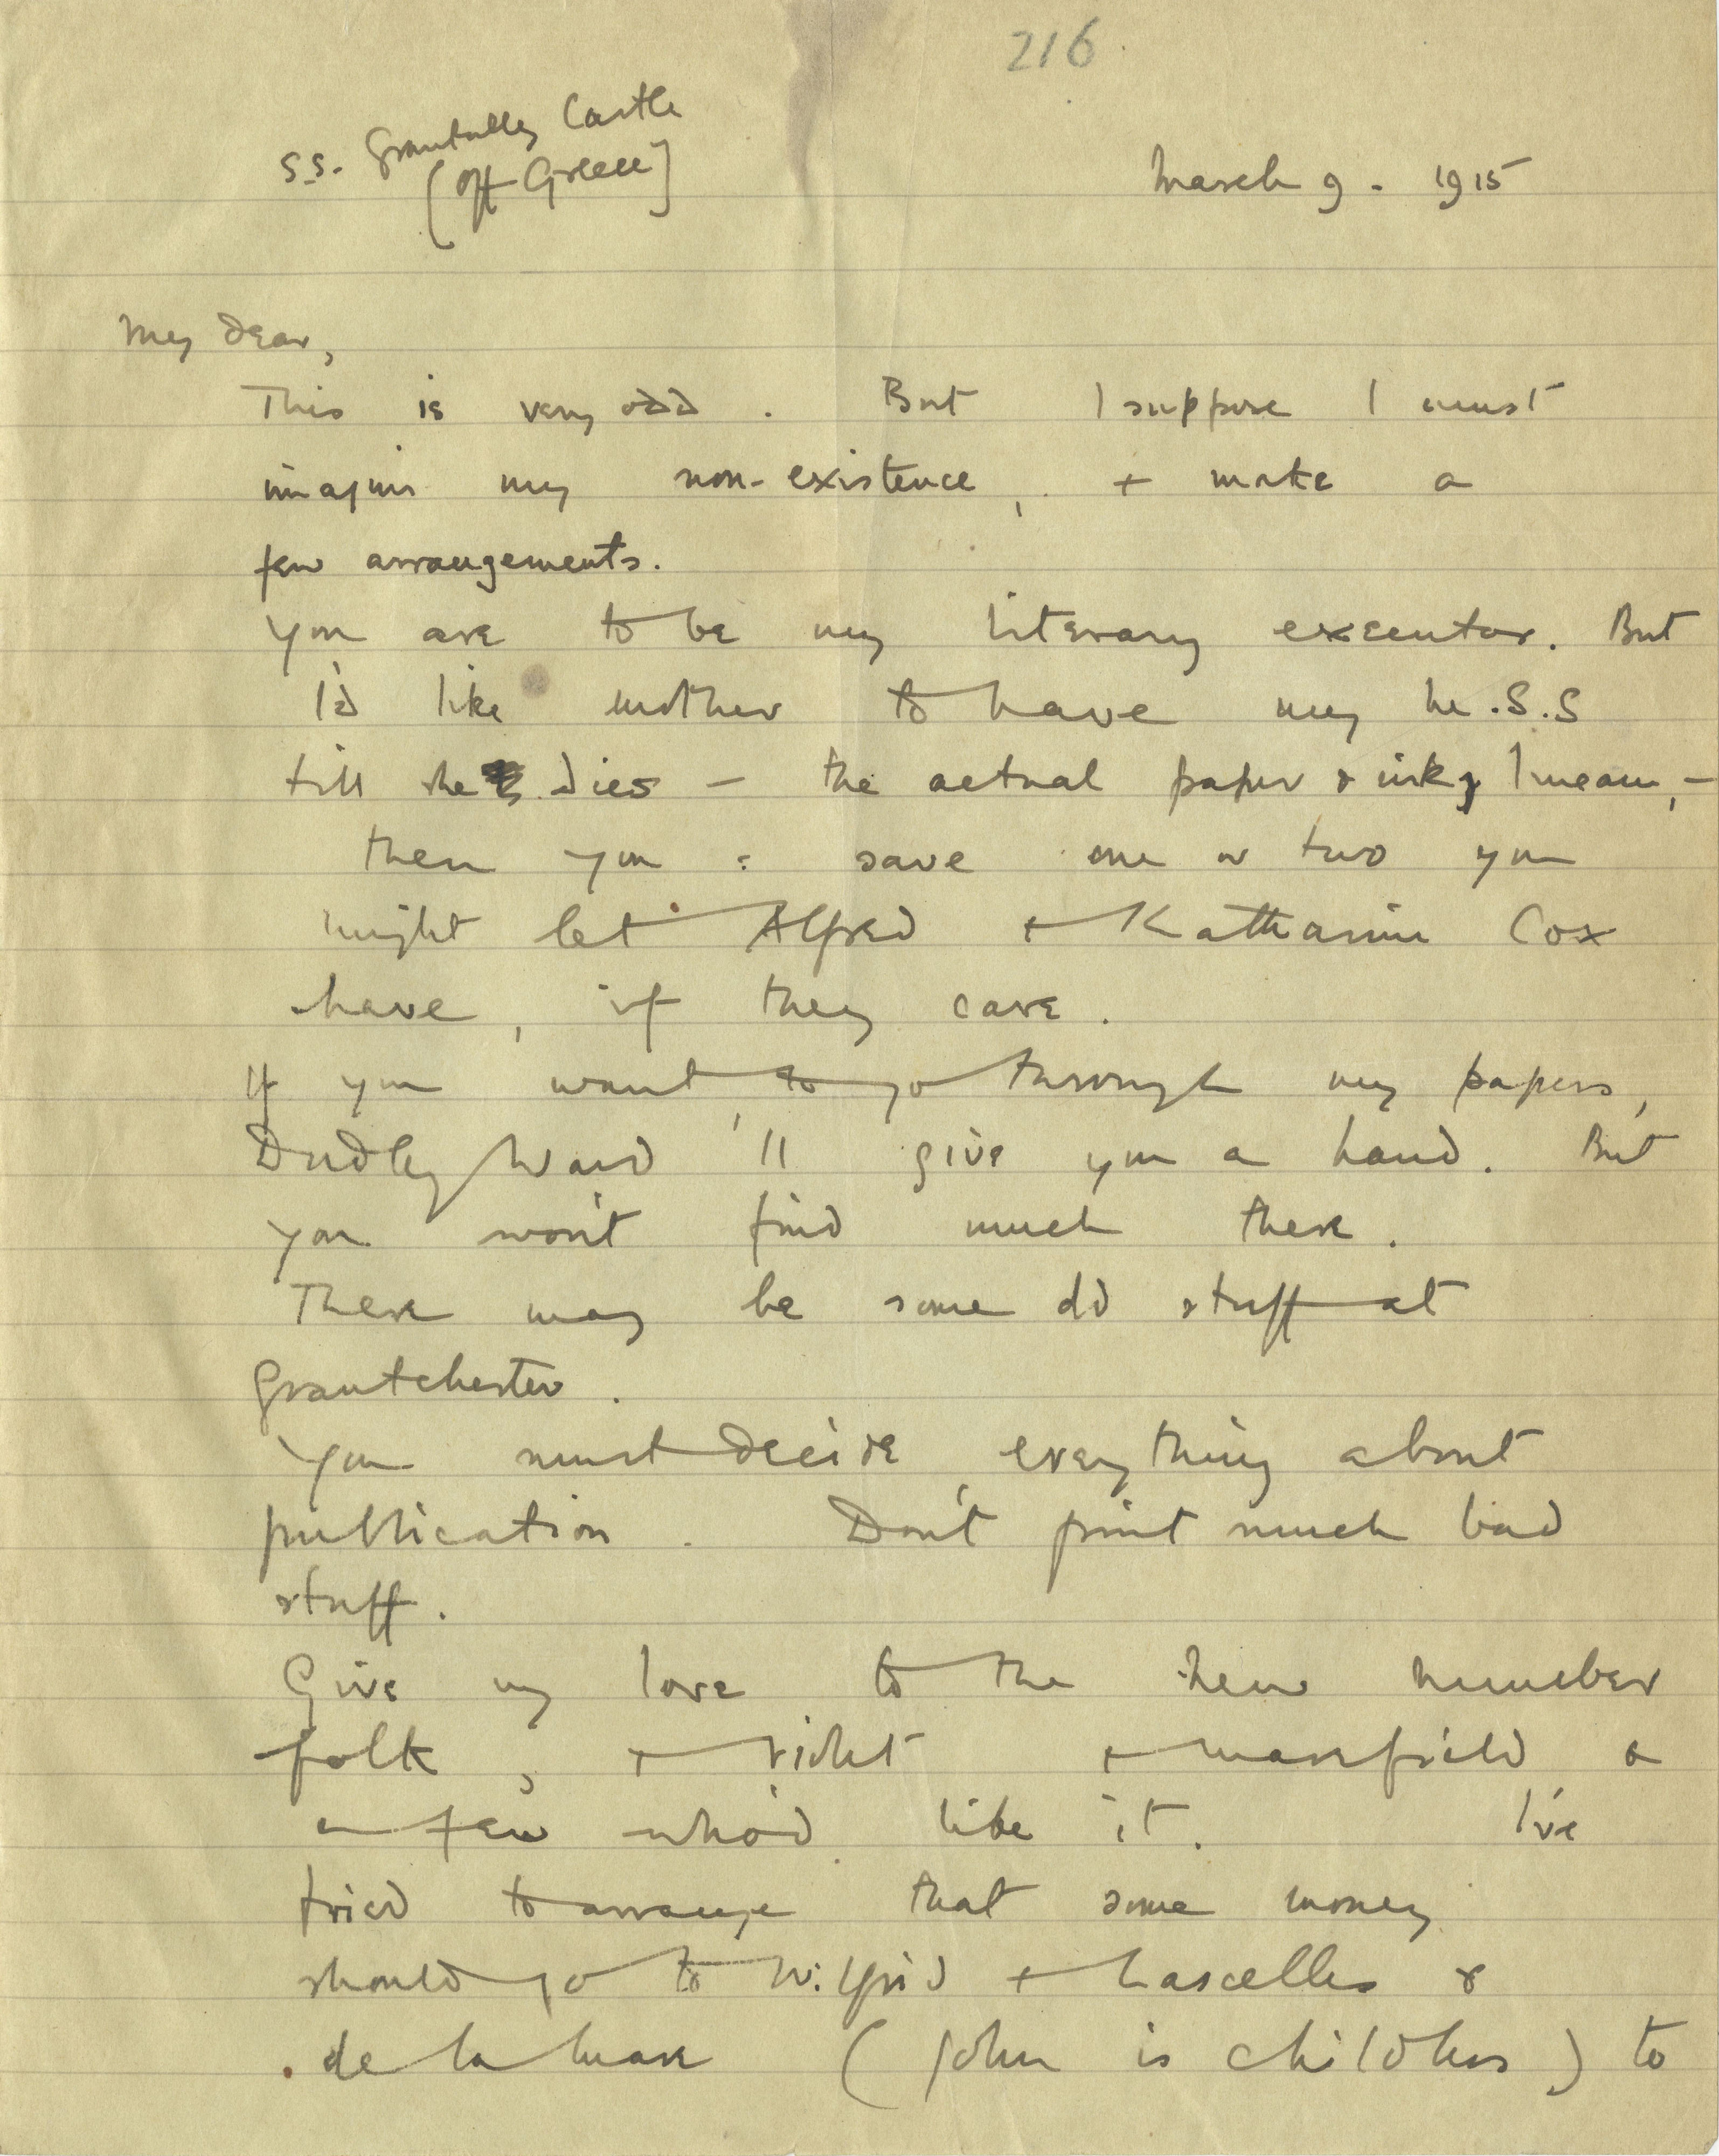 216
S.S. Grantully Castle
[off Greece]
March 9. 1915
My dear,
This is very odd. But I suppose I must
imagine my non-existence, + make a
few arrangements.
You are to be my literary executor. But
I'd like mother to have my M.S.S
till she dies – the actual paper & ink I mean, –
then you : save one or two you
might let Alfred + Katharine Cox
have, if they care.
If you want to go through my papers,
Dudley Ward'll give you a hand. But
you won't find much there.
There may be some old stuff at
Grantchester.
You must decide everything about
publication. Don't print much bad
stuff.
Give my love to the New Number
folk, + Violet + Masefield &
a few who'd like it. I've
tried to arrange that some money
should go to Wilfrid + Lascelles &
de la Mare (John is childless) to